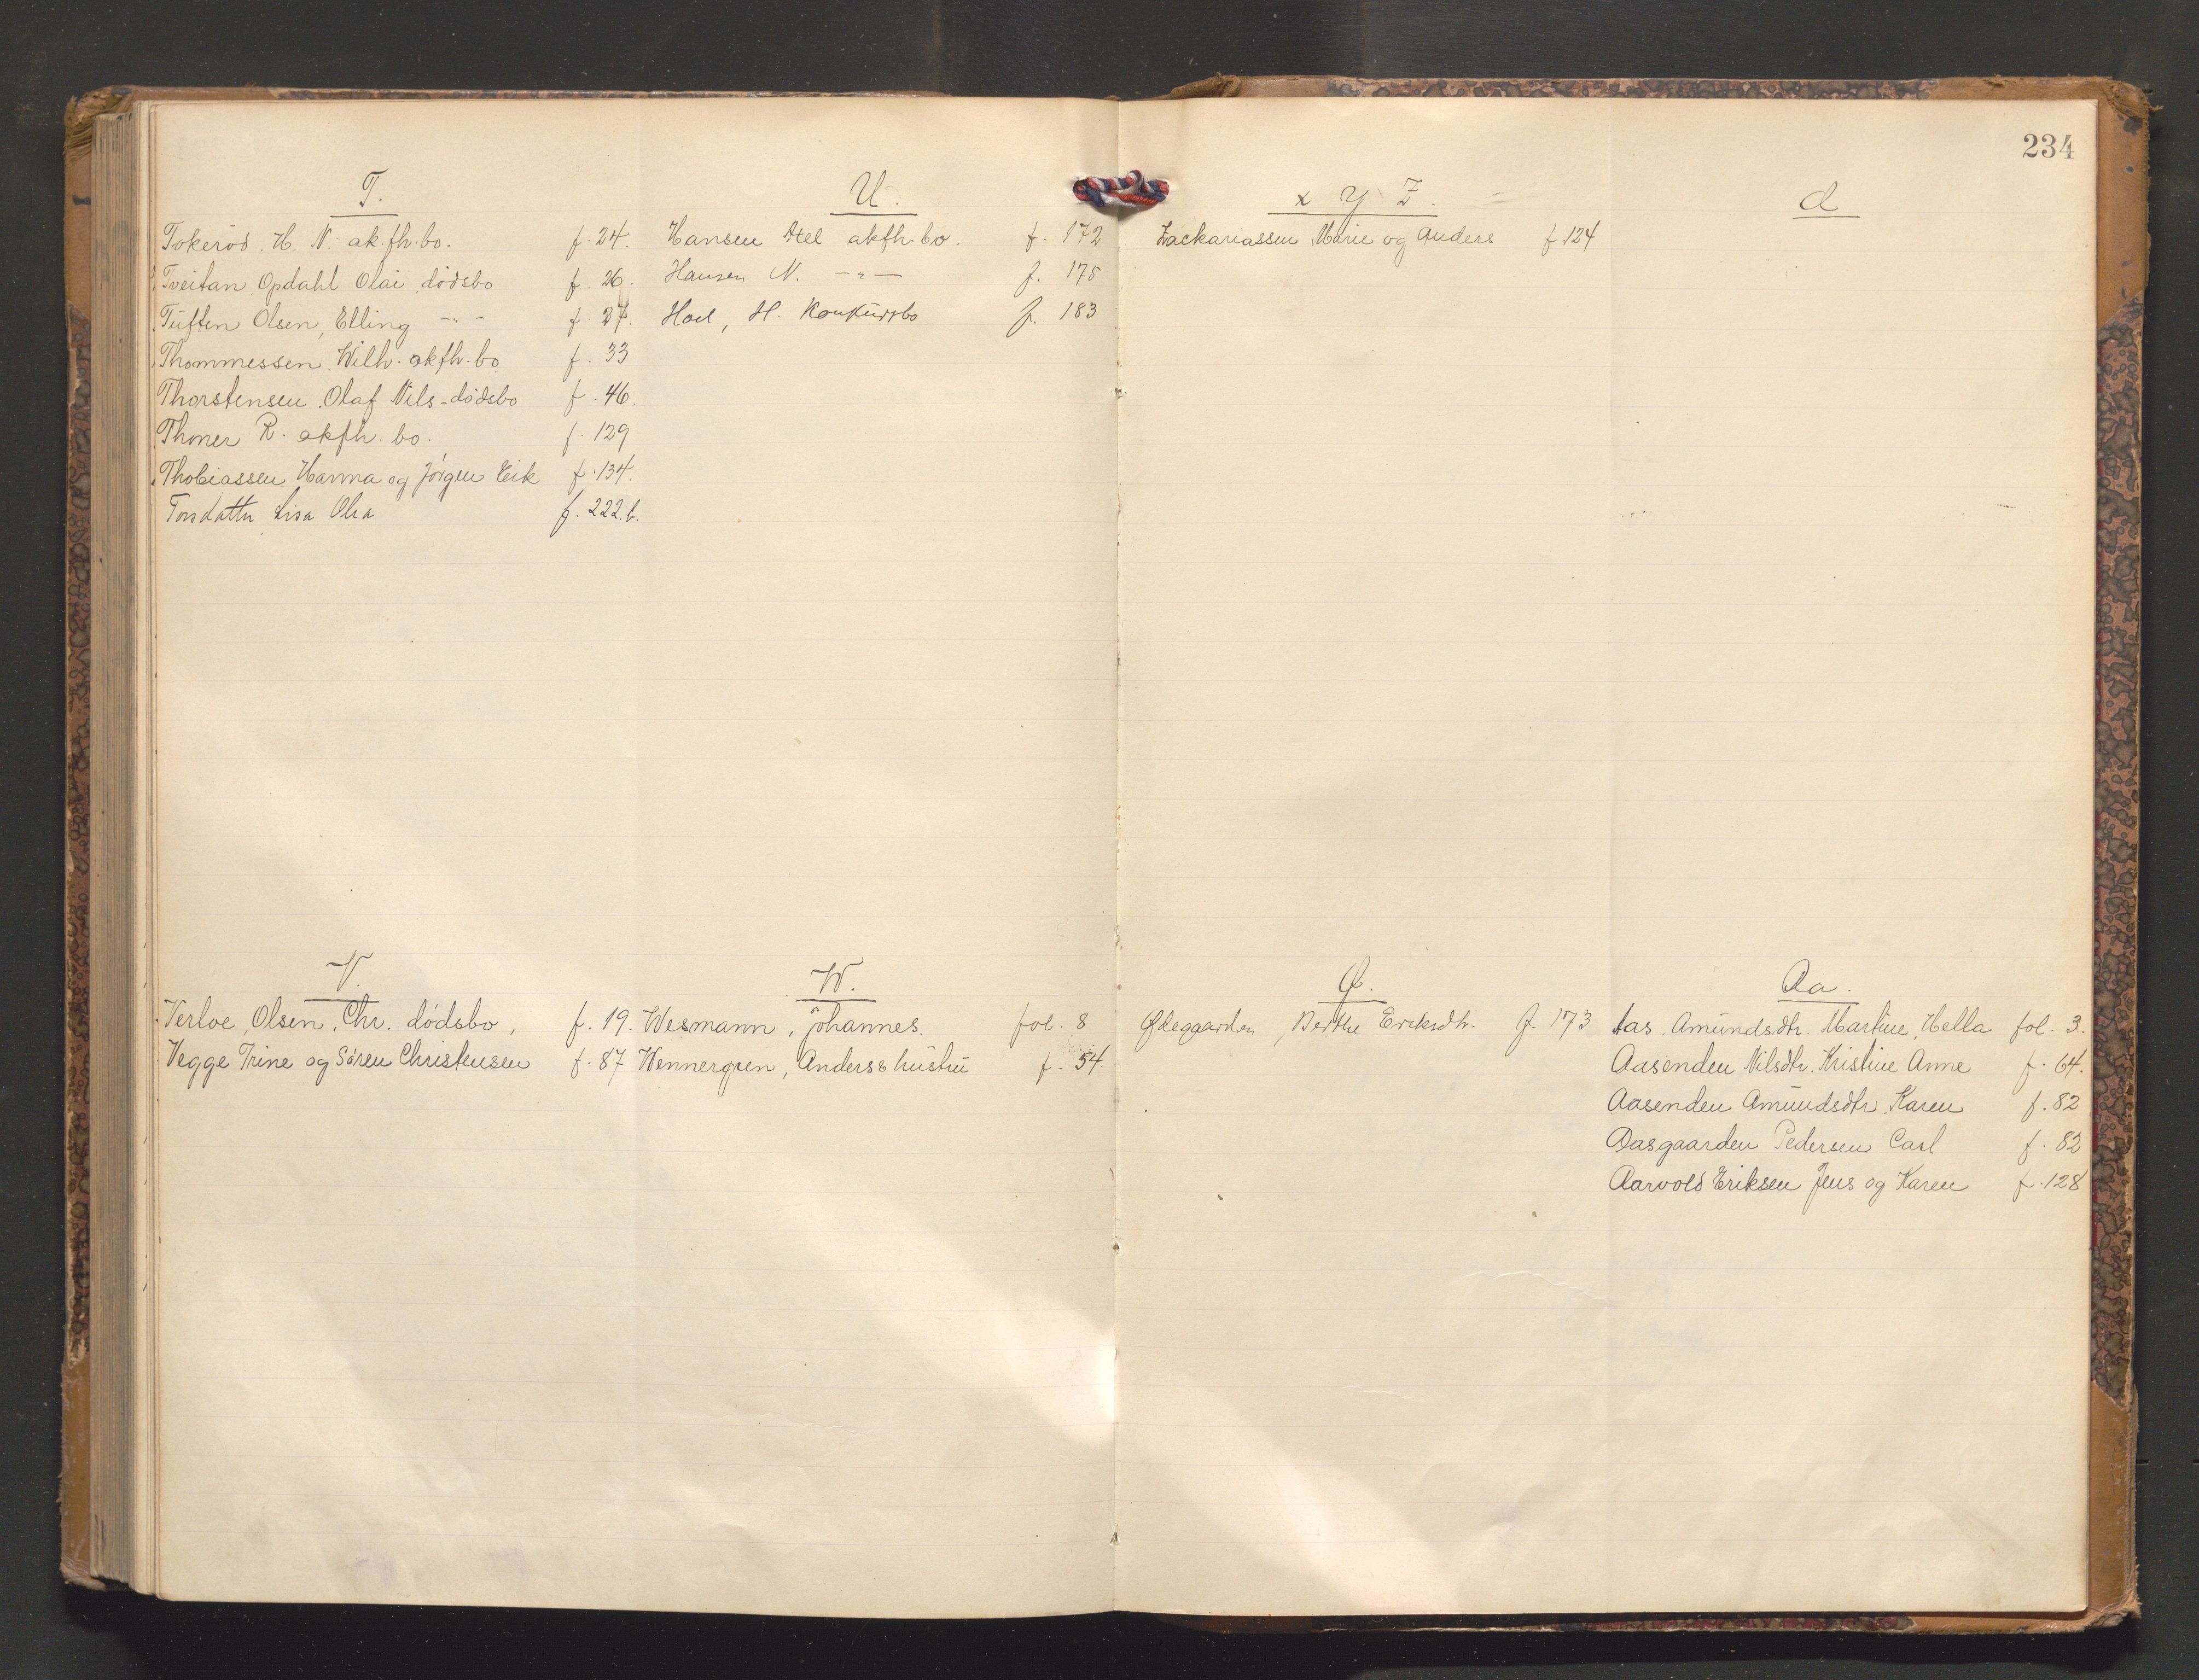 234
T.
Tokeröd. H. N. ak.fh.bo. f. 24.
Tveitan Opdahl Olai dödsbo f. 26.
Tuften Olsen, Elling -"- f. 27.
Thommessen. Wilh. akfh.bo f. 33
Thorstensen Olaf Nils-dödsbo f. 46.
Thoner R. akfh. bo. f. 129
Thobiassen Hanna og Jörgen Eik f. 134.
Torsdatter Lisa Olea f. 222.b.
U.
Hansen Axel akfh.bo. f. 172
Hansen N. -"- f. 175
Hoel, H. Konkursbo f. 183
x y Z.
Zackariassen Marie og Anders f 124
V.
Verloe, Olsen, Chr. dödsbo, f. 19.
Vegge Trine og Sören Christensen f. 87
W.
Wesmann, Johannes. fol. 8
Wennergren, Anders & hustru f. 54.
Ø.
Ødegaarden, Berthe Eriksdtr. f. 173
Aa.
Aas Amundsdtr. Martine, Hella fol. 3.
Aasenden Nilsdtr. Kristine Anne f. 64.
Aasenden Amundsdtr Karen f. 82
Aasgaarden Pedersen Carl f. 82
Aarvold Eriksen Jens og Karen f. 128